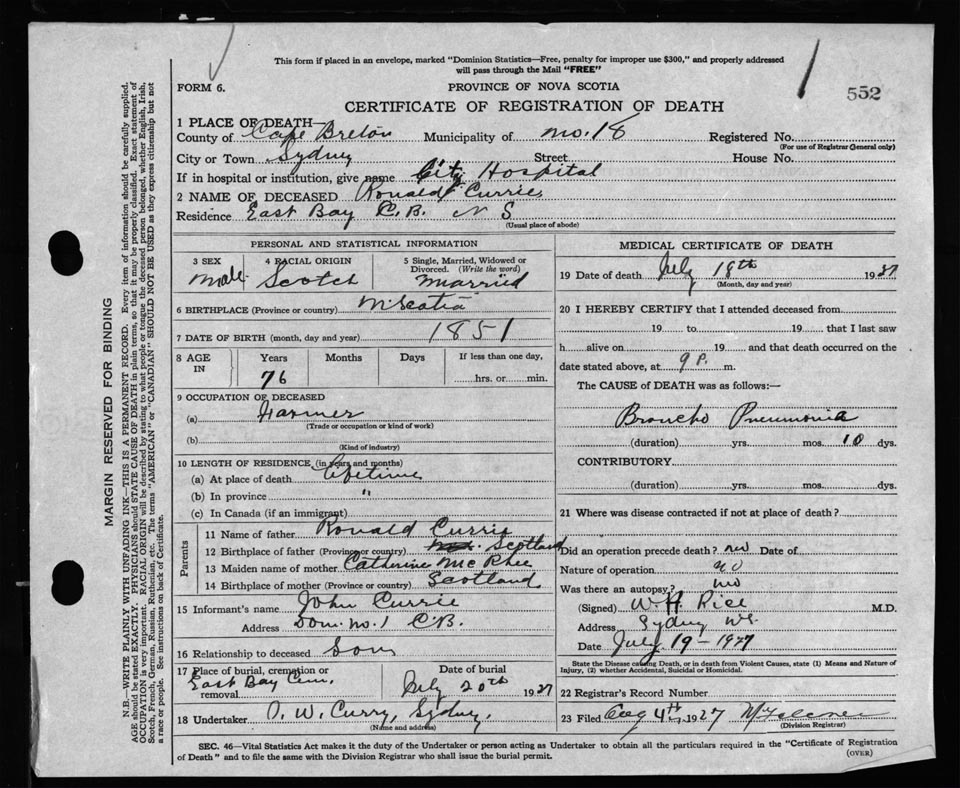 This form if placed in an envelope, marked "Dominion Statistics—Free, penalty for improper use $300," and properly addressed
will pass through the Mail "FREE"
FORM 6.
PROVINCE OF NOVA SCOTIA
552
CERTIFICATE OF REGISTRATION OF DEATH
1 PLACE OF DEATH—
County of Cape Breton Municipality of No. 18 Registered No.
(For use of Registrar General only)
City or Town Sydney Street House No.
If in hospital or institution, give name City Hospital
2 NAME OF DECEASED Ronald Currie
Residence East Bay C.B. N S
(Usual place of abode)
PERSONAL AND STATISTICAL INFORMATION
3 SEX Male
4 RACIAL ORIGIN Scotch
5 Single, Married, Widowed or Divorced. (Write the word) Married
6 BIRTHPLACE (Province or country) N Scotia
7 DATE OF BIRTH (month, day and year) 1851
8 AGE IN Years Months Days If less than one day,
76 hrs. or min.
9 OCCUPATION OF DECEASED
(a) Farmer
(Trade or occupation or kind of work)
(b)
(Kind of industry)
10 LENGTH OF RESIDENCE (in years and months)
(a) At place of death Lifetime
(b) In province "
(c) In Canada (if an immigrant)
Parents
11 Name of father Ronald Currie
12 Birthplace of father (Province or country) Scotland
13 Maiden name of mother Catherine McPhee
14 Birthplace of mother (Province or country) Scotland
15 Informant's name John Currie
Address Dom. No. 1 C.B.
16 Relationship to deceased Son
17 Place of burial, cremation or removal East Bay Cem.
Date of burial July 20th 1927
18 Undertaker O. W. Curry, Sydney,
(Name and address)
MEDICAL CERTIFICATE OF DEATH
19 Date of death July 18th 1927
(Month, day and year)
20 I HEREBY CERTIFY that I attended deceased from
19 to 19 that I last saw
h alive on 19 and that death occurred on the
date stated above, at 9 P. m.
The CAUSE of DEATH was as follows:—
Broncho Pneumonia
(duration) yrs. mos. 10 dys.
CONTRIBUTORY
(duration) yrs. mos. dys.
21 Where was disease contracted if not at place of death?
Did an operation precede death? no Date of
Nature of operation no
Was there an autopsy? no
(Signed) W. H. Rice M.D.
Address Sydney NS.
Date July 19 - 1927
State the Disease causing Death, or in death from Violent Causes, state (1) Means and Nature of
Injury, (2) whether Accidental, Suicidal or Homicidal.
22 Registrar's Record Number
23 Filed Aug 4th 1927
(Division Registrar)
SEC. 46—Vital Statistics Act makes it the duty of the Undertaker or person acting as Undertaker to obtain all the particulars required in the "Certificate of Registration
of Death" and to file the same with the Division Registrar who shall issue the burial permit.
(OVER)
MARGIN RESERVED FOR BINDING
N.B.—WRITE PLAINLY WITH UNFADING INK—THIS IS A PERMANENT RECORD. Every item of information should be carefully supplied.
AGE should be stated EXACTLY. PHYSICIANS should STATE CAUSE OF DEATH in plain terms, so that it may be properly classified. Exact statement of
OCCUPATION is very important. RACIAL ORIGIN will be described by stating to what people or tongue the deceased person belonged, whether English, Irish,
Scotch, French, German, Russian, Ruthenian, etc. The terms "AMERICAN" or "CANADIAN" SHOULD NOT BE USED as they express citizenship but not
a race or people. See instructions on back of Certificate.